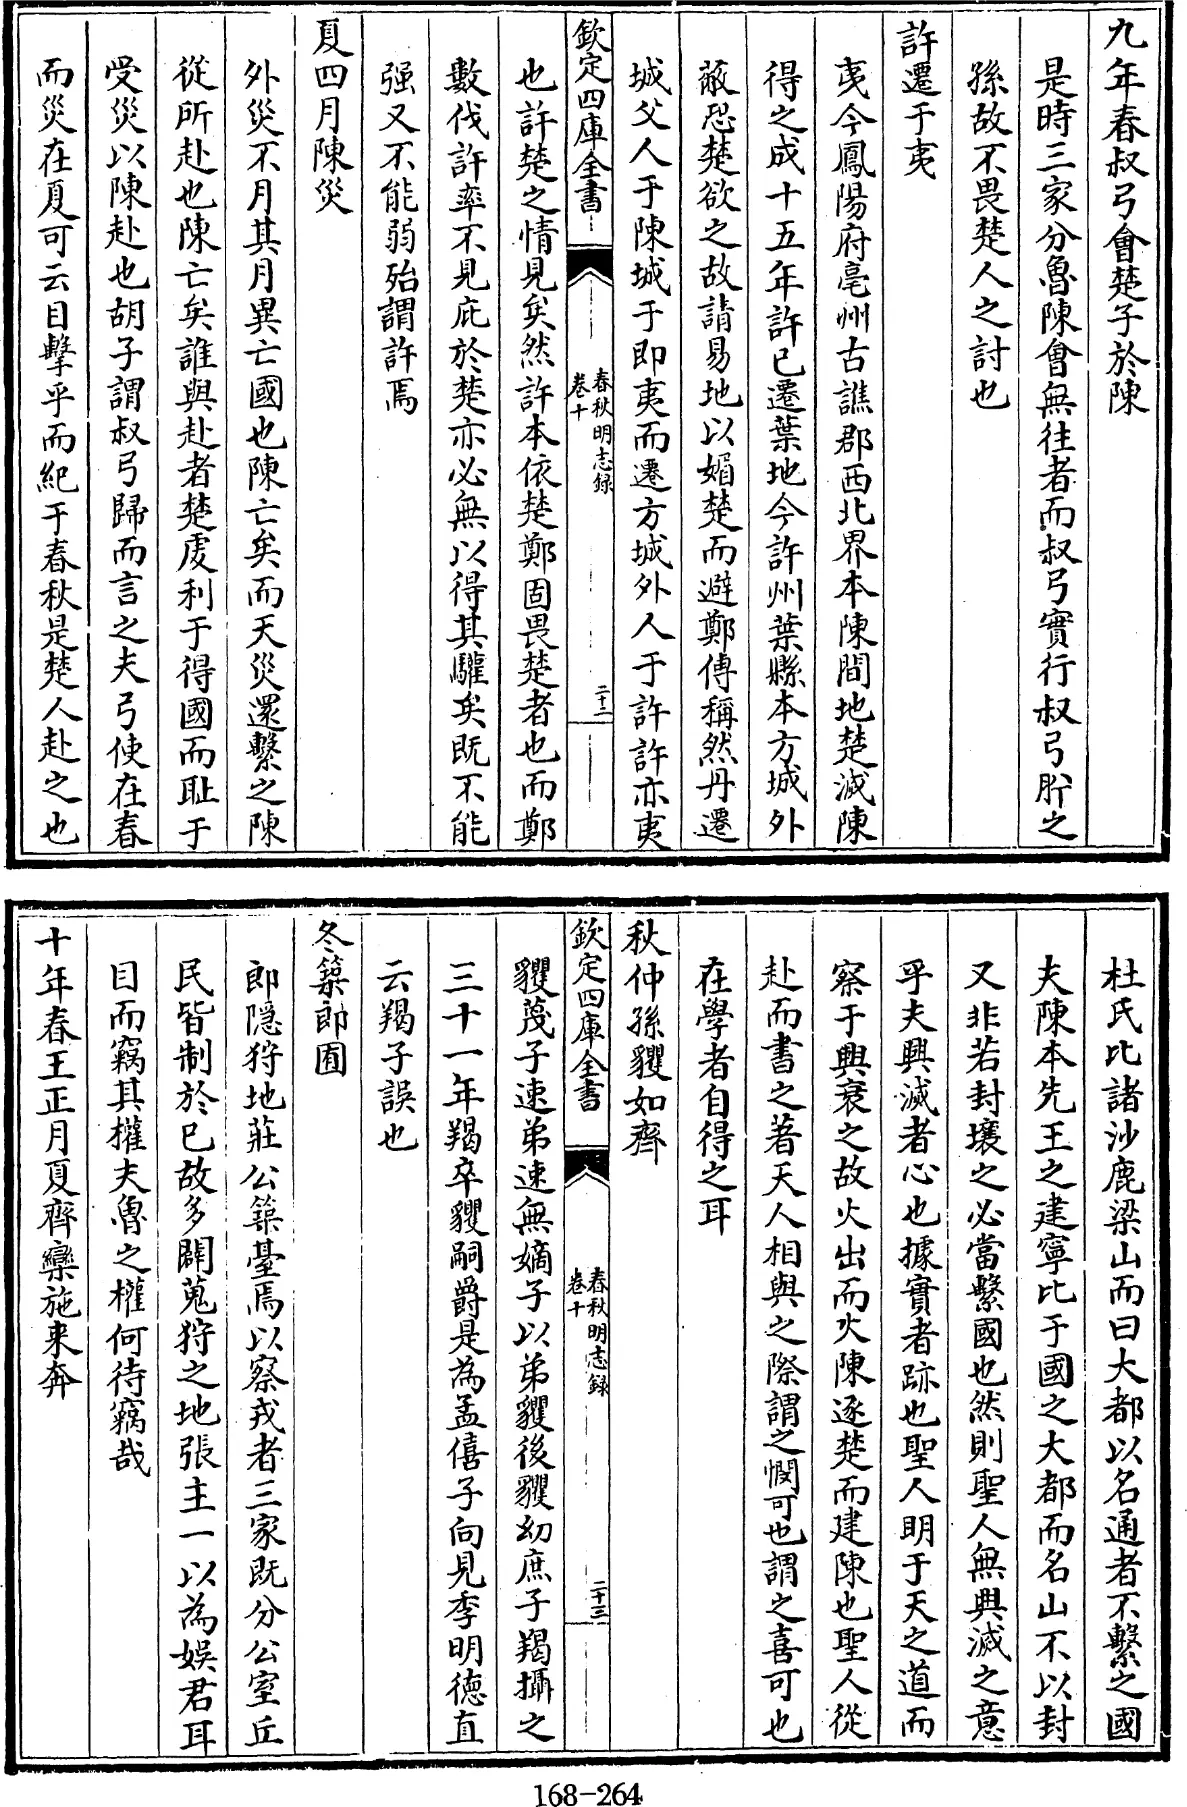 九年春叔弓會楚子於陳
是時三家分魯陳會無往者而叔弓實行叔弓肸之
孫故不畏楚人之討也
許遷于夷
夷今鳳陽府亳州古譙郡西北界本陳間地楚滅陳
得之成十五年許已遷葉地今許州葉縣本方城外
蔽恐楚欲之故請易地以媚楚而避鄭傅稱然丹遷
城父人于陳城于即夷而遷方城外人于許許亦夷
欽定四庫全書
春秋明志録
卷十
二十二
也許楚之情見矣然許本依楚鄭固畏楚者也而鄭
數伐許率不見庇於楚亦必無以得其驩矣既不能
强又不能弱殆謂許焉
夏四月陳災
外災不月其月異亡國也陳亡矣而天災還繫之陳
從所赴也陳亡矣誰與赴者楚虔利于得國而耻于
受災以陳赴也胡子謂叔弓歸而言之夫弓使在春
而災在夏可云目擊乎而紀于春秋是楚人赴之也
杜氏比諸沙鹿梁山而曰大都以名通者不繫之國
夫陳本先王之建寧比于國之大都而名山不以封
又非若封壤之必當繫國也然則聖人無興滅之意
乎夫興滅者心也據實者跡也聖人明于天之道而
察于興衰之故火出而火陳逐楚而建陳也聖人從
赴而書之著天人相與之際謂之憫可也謂之喜可也
在學者自得之耳
秋仲孫貜如齊
欽定四庫全書
春秋明志録
卷十
二十三
貜蔑子速弟速無嫡子以弟貜後貜幼庶子羯攝之
三十一年羯卒貜嗣爵是為孟僖子向見季明徳直
云羯子誤也
冬築郎囿
郎隠狩地莊公築臺焉以察戎者三家既分公室丘
民皆制於已故多闢蒐狩之地張主一以為娱君耳
目而竊其權夫魯之權何待竊哉
十年春王正月夏齊欒施来奔
168-264